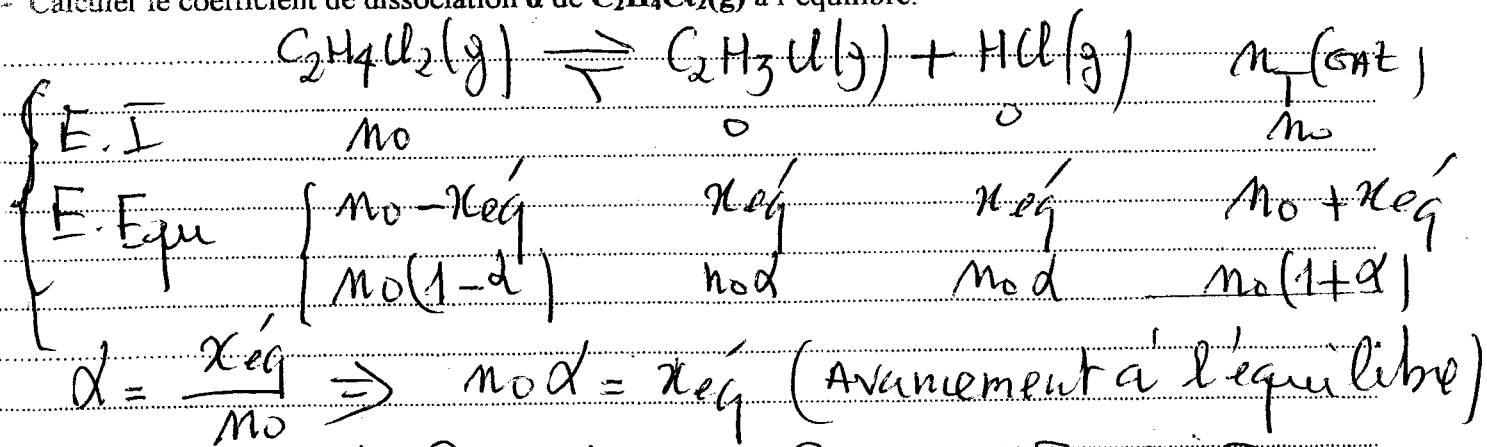 - Calculer le coefficient de dissociation α de C₂H₄Cl₂(g) à l'équilibre.
C₂H₄Cl₂(g) ⇌ C₂H₃Cl(g) + HCl(g) n_T(GAZ)
E.I n₀ 0 0 n₀
E.Equ n₀-xéq xéq xéq n₀+xéq
n₀(1-α) n₀α n₀α n₀(1+α)
α = xéq/n₀ ⇒ n₀α = xéq (Avancement à l'équilibre)